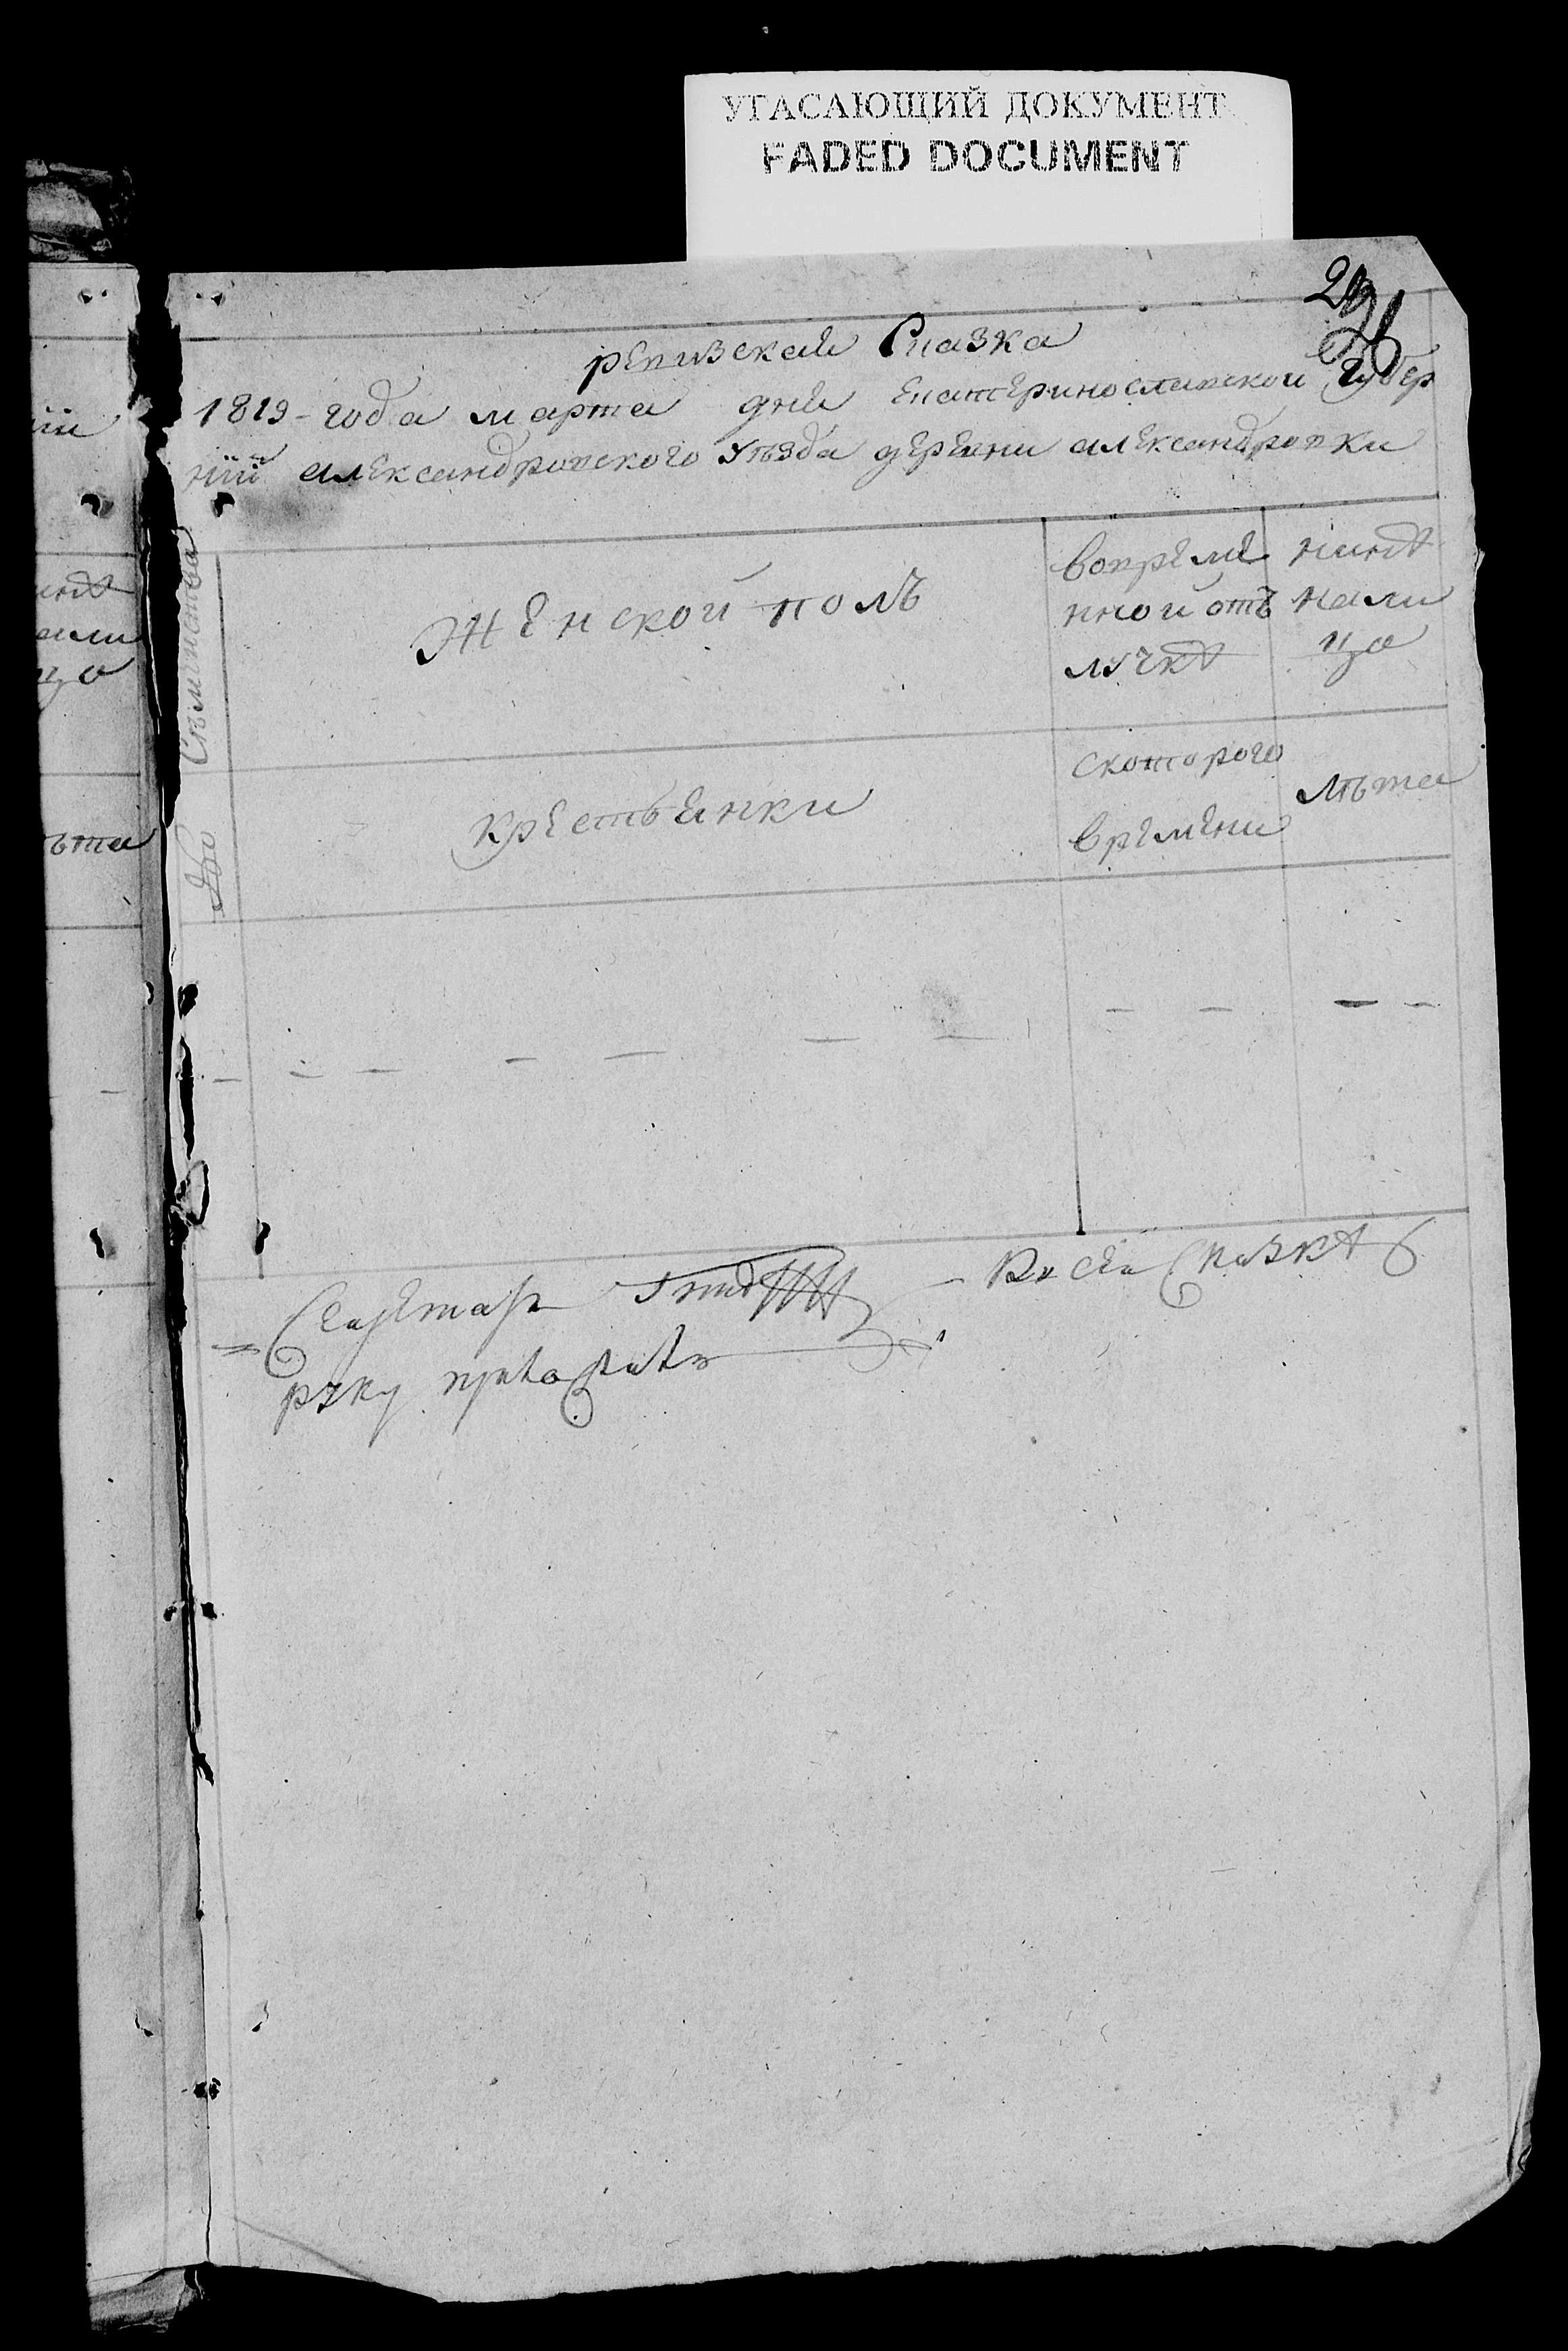 УГАСАЮЩИЙ ДОКУМЕНТ
FADED DOCUMENT
ревизская Сказка
1819 - года марта дня Екатеринославской Губер
нїй александровского уѣзда деревни александровки
Женской полъ
вовреме
нной отъ
лучкѣ
нинѣ
нали
цо
Семейства
крестьянки
скоторого
времени
Лѣта
Ксей Сказкѣ
руку приложилъ